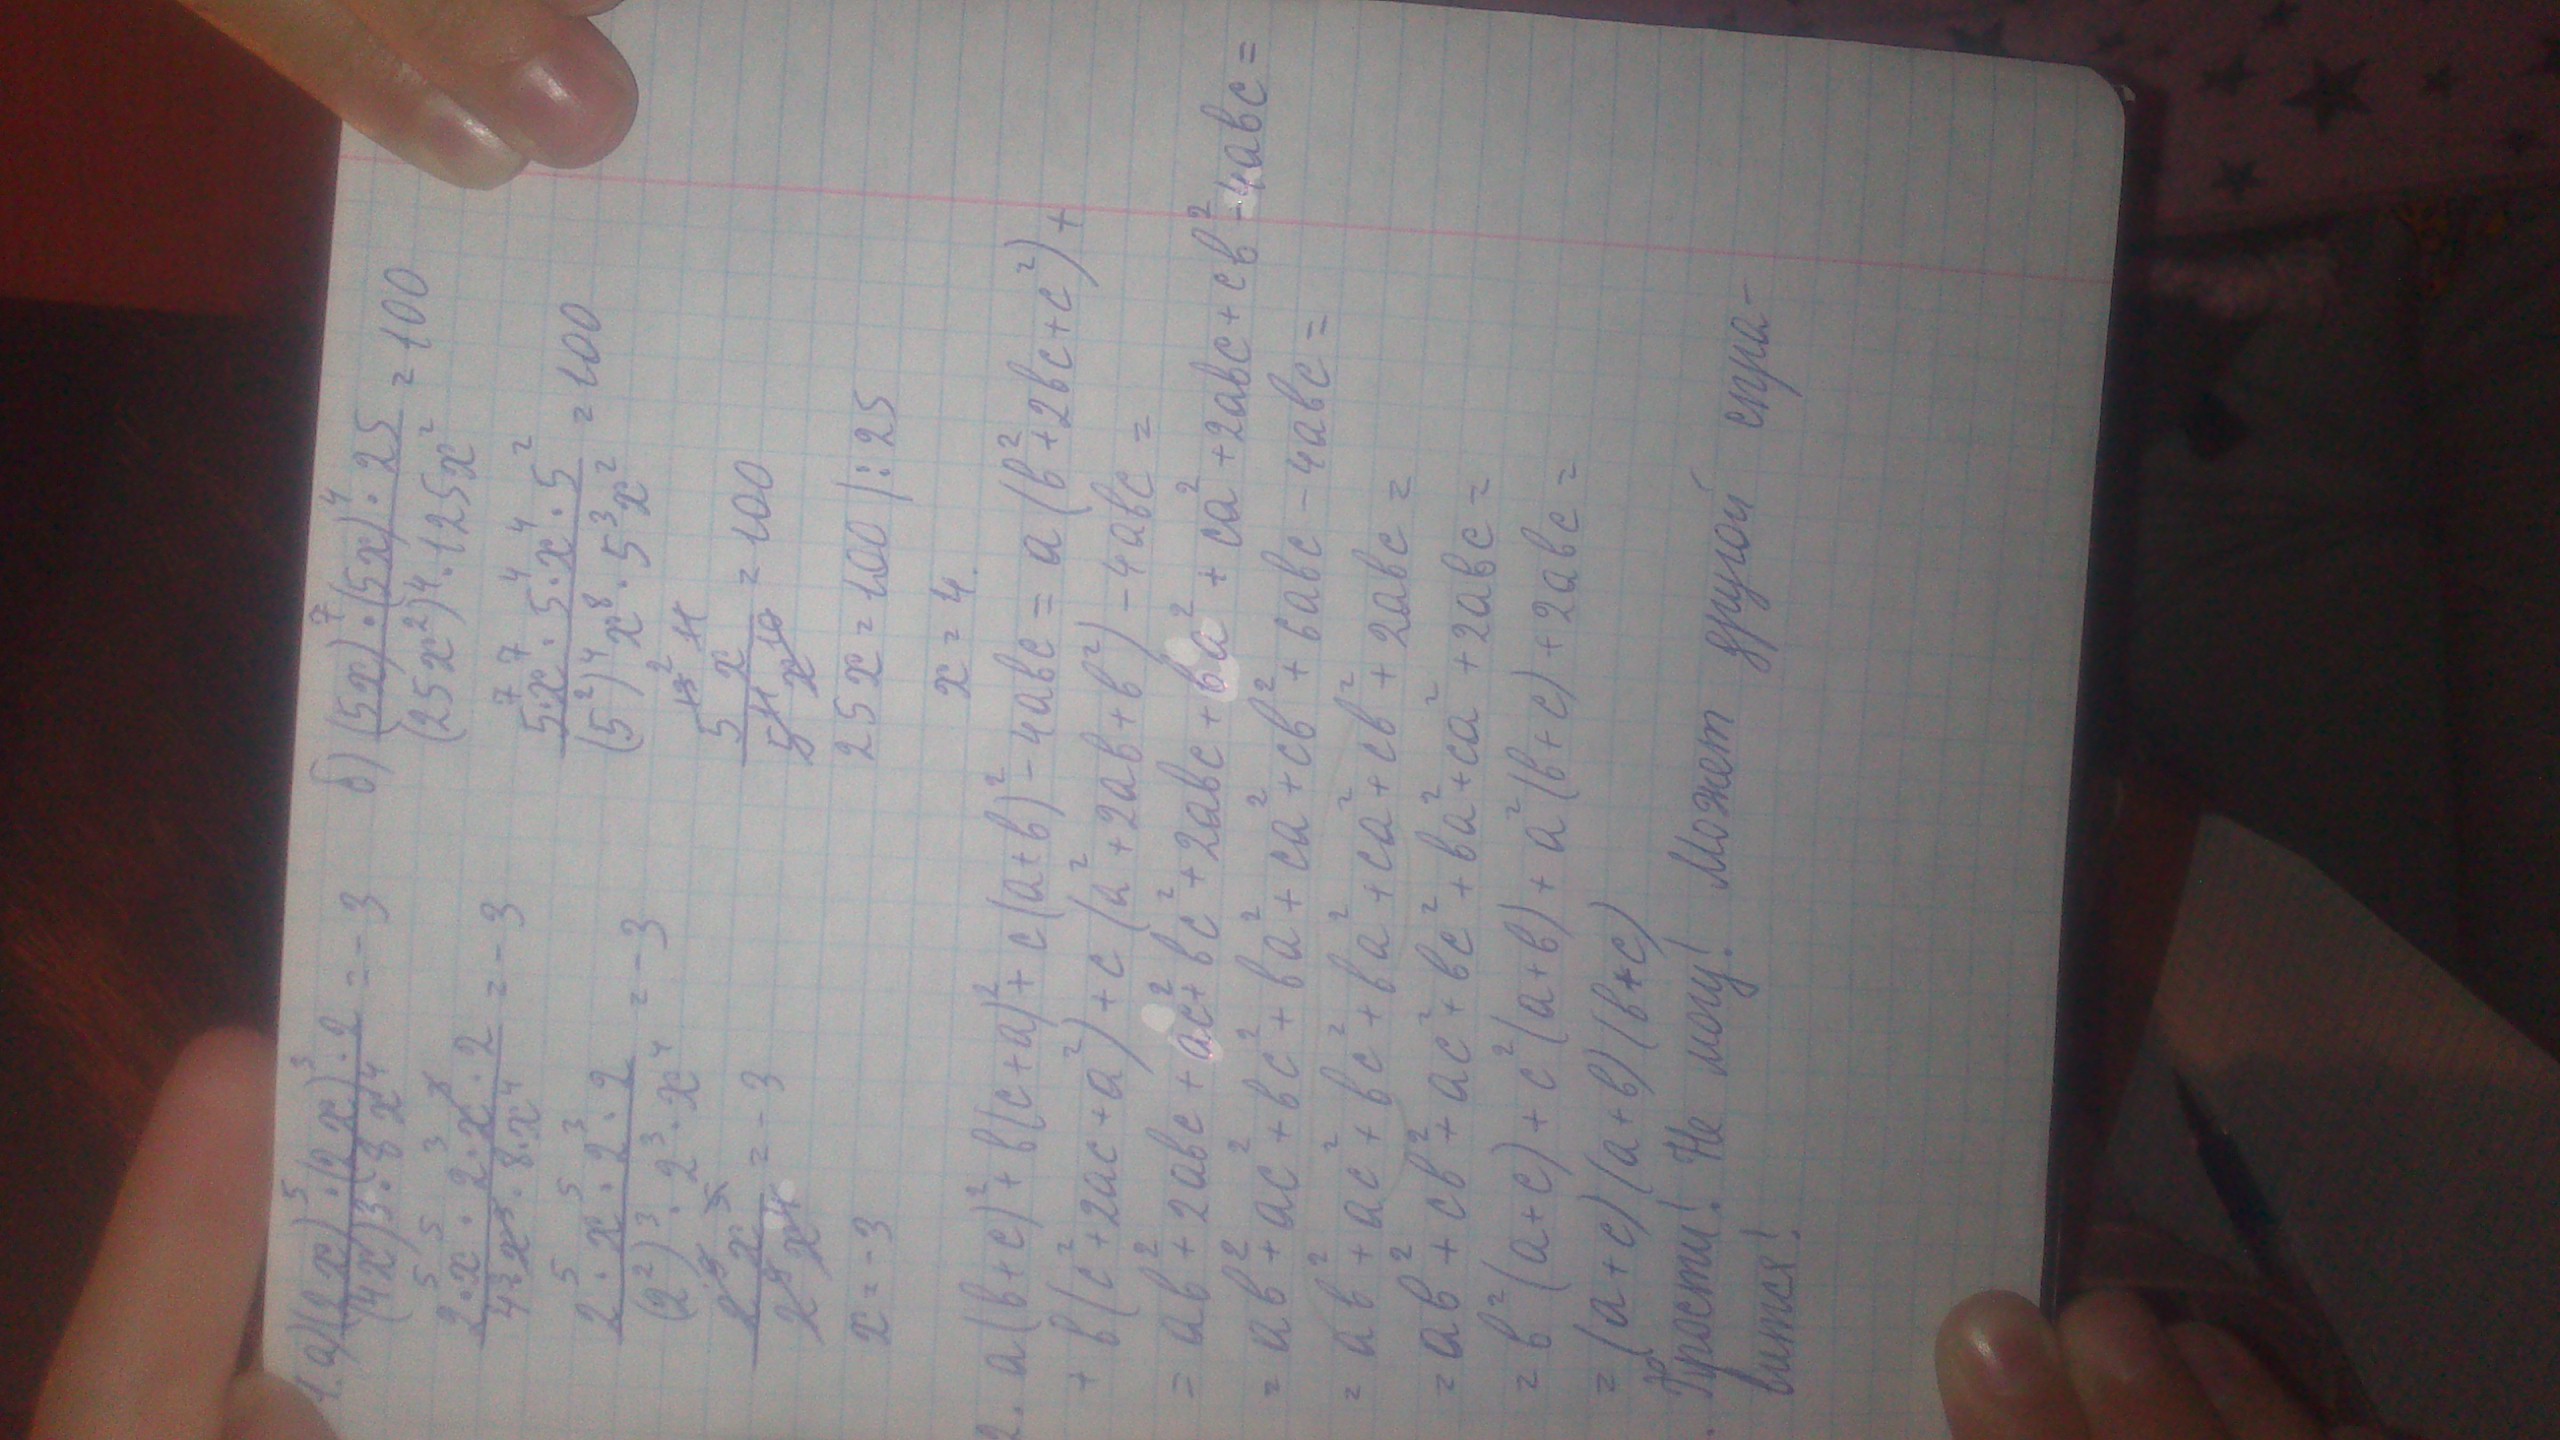 1. а) (2x)⁵·(2x)³·2 / (4x)3·8x⁴ = -3
2⁵·x⁵·2³·x·2 / 43x³·8·x⁴ = -3
2⁵·x⁵·2³·2 / (2²)³·2³·x⁴ = -3
x = -3
б) (5x)⁷·(5x)⁴·25 / (25x²)4·125x² = 100
5⁷·x⁷·5⁴·x⁴·5² / (5²)⁴x⁸·5³x² = 100
25x = 100 |:25
x = 4.
2. a(b+c)²+b(c+a)²+c(a+b)²-4abc = a(b²+2bc+c²)+
+b(c²+2ac+a²)+c(a²+2ab+b²)-4abc =
= ab²+2abc+ac²+bc²+2abc+ba²+ca²+2abc+cb²-4abc =
= ab²+ac²+bc²+ba²+ca²+cb²+6abc-4abc =
= ab²+ac²+bc²+ba²+ca²+cb²+2abc =
= ab²+cb²+ac²+bc²+ba²+ca²+2abc =
= b²(a+c)+c²(a+b)+a²(b+c)+2abc =
= (a+c)(a+b)(b+c)
Прости! Не могу! Может другой спра-
вится!